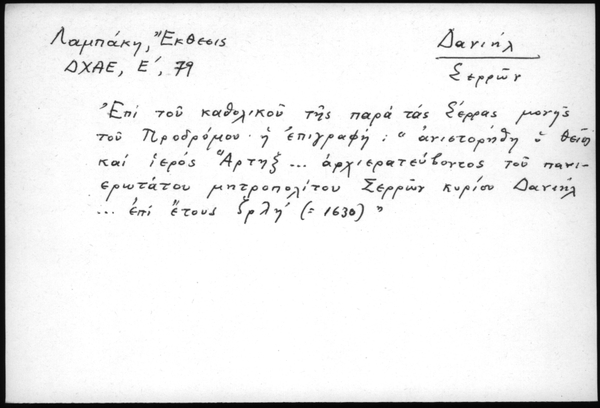 Λαμπάκη, Ἔκθεσις
Δανιήλ
ΔΧΑΕ, Ε΄, 79
Σερρῶν
"Ἐπί τοῦ καθολικοῦ τῆς παρά τάς Σέρρας μονῆς
τοῦ Προδρόμου ἡ ἐπιγραφή: "ἀνιστορήθη ὁ θεῖος
καί ἱερός Ἄρτηξ ... ἀρχιερατεύοντος τοῦ πανι-
ερωτάτου μητροπολίτου Σερρῶν κυρίου Δανιήλ
... ἐπί ἔτους ζρλή (= 1630)"